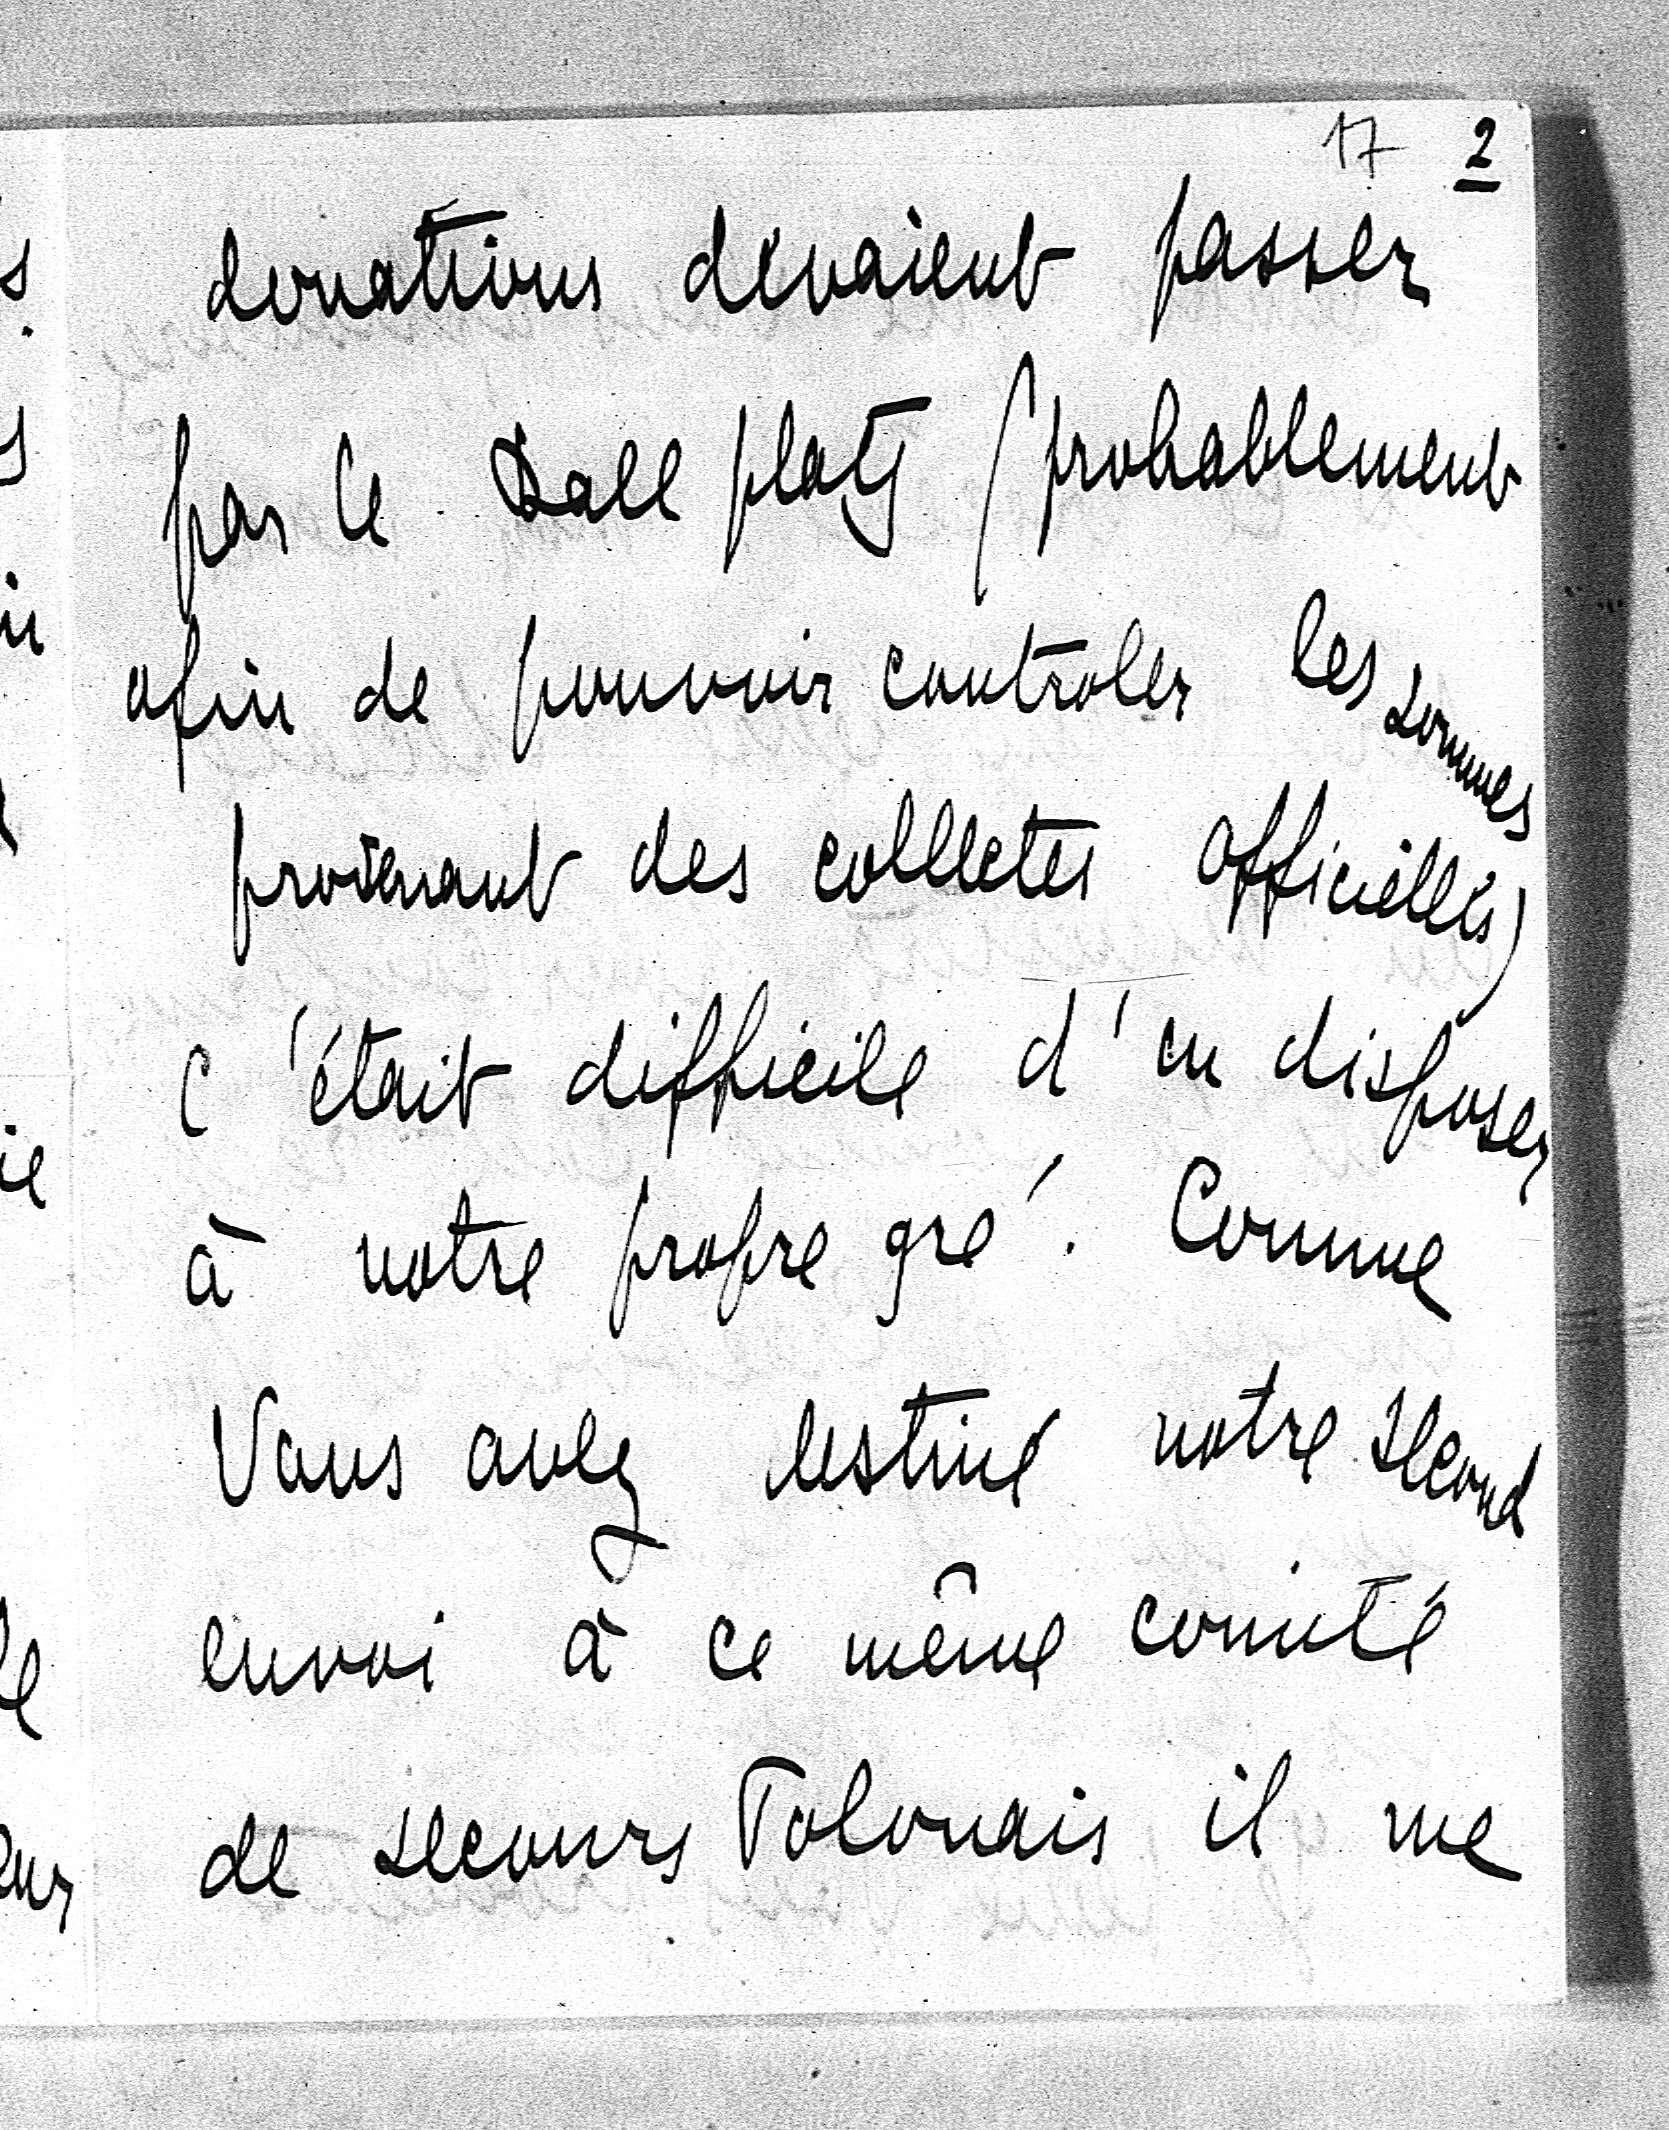 17 2
donations devaient passer
par le Ballplatz (probablement
afin de pouvoir controler les sommes
provenant des collectes officielles)
c'était difficile d'en disposer
à notre propre gré. Comme
Vous avez destiné notre second
envoi à ce même comité
de secours Polonais il me